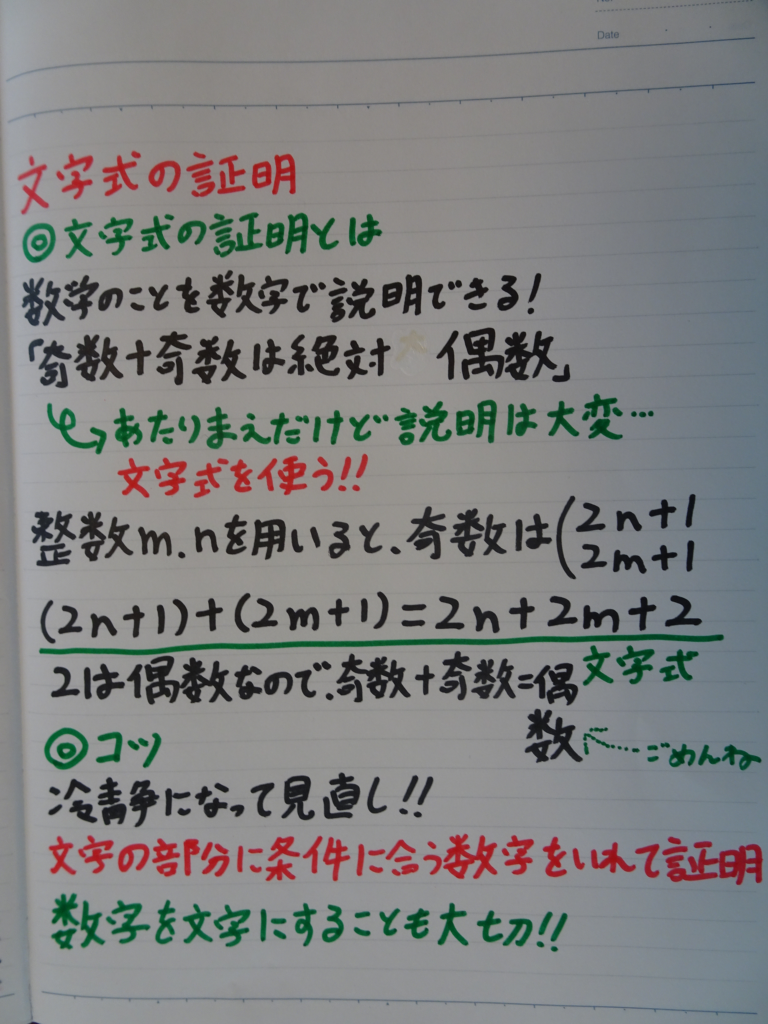 Date
文字式の証明
◎文字式の証明とは
数学のことを数字で説明できる!
「奇数+奇数は絶対 偶数」
あたりまえだけど説明は大変…
文字式を使う!!
整数m.nを用いると、奇数は(2n+1
2m+1
(2n+1)+(2m+1)=2n+2m+2
2は偶数なので、奇数+奇数=偶
文字式
数
ごめんね
◎コツ
冷静になって見直し!!
文字の部分に条件に合う数字をいれて証明
数字を文字にすることも大切!!